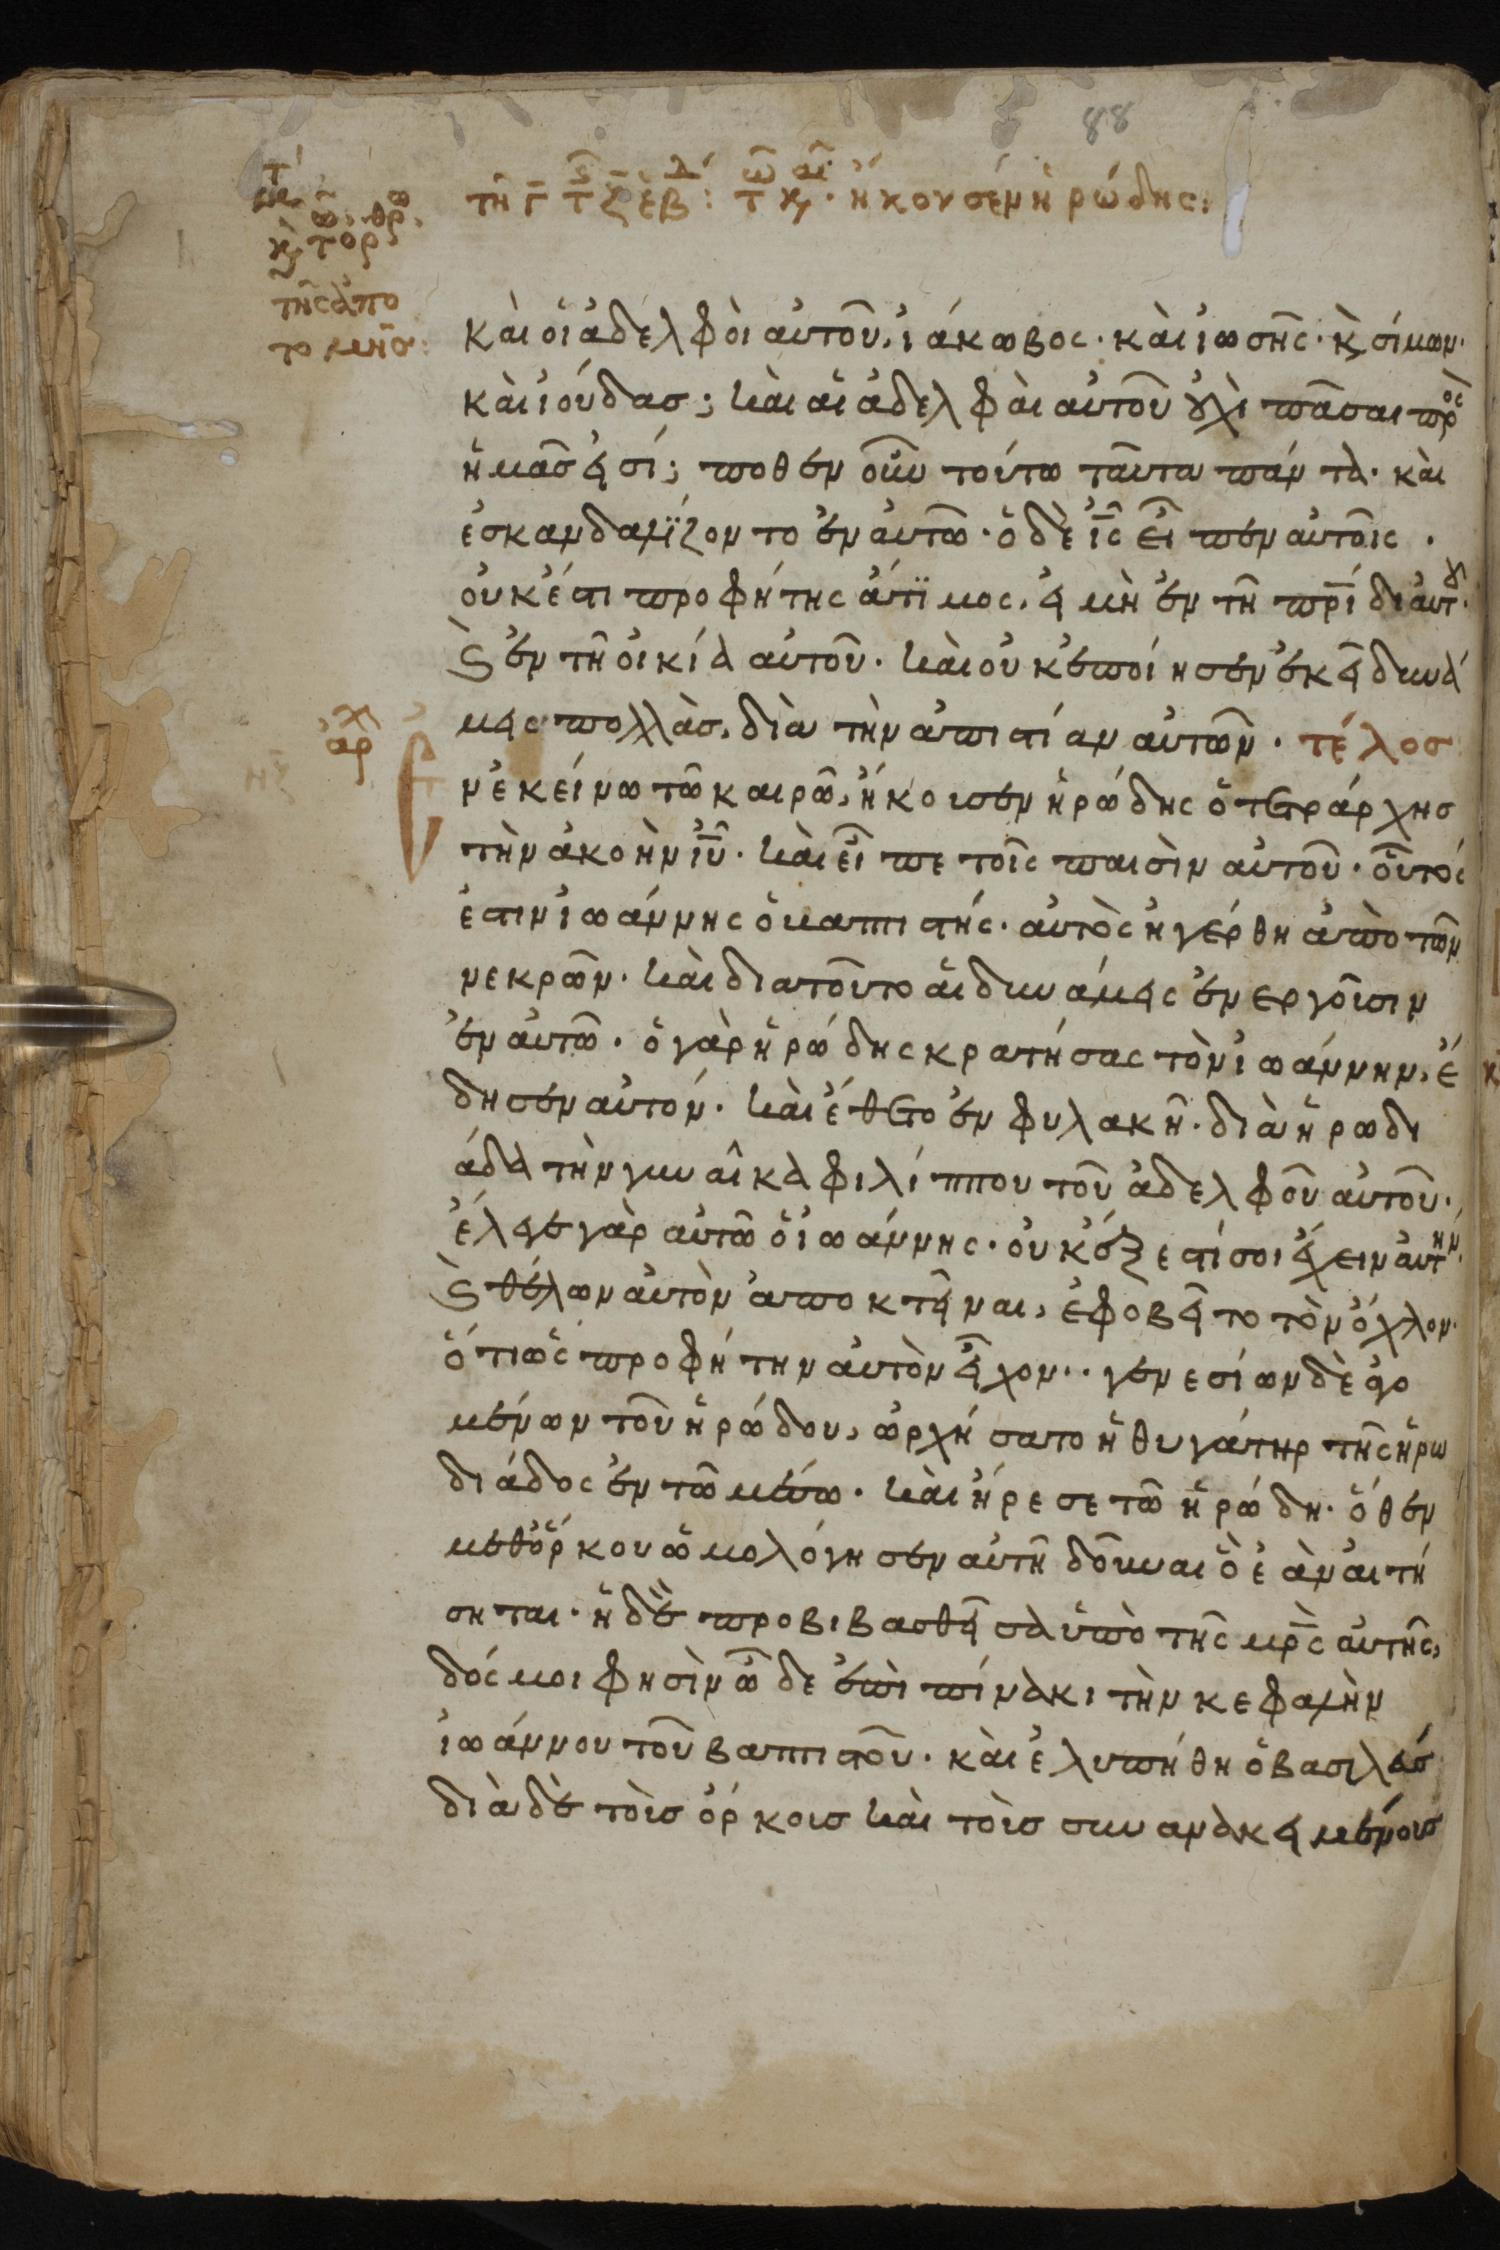 88
τῆ Γ τ ζ ἑβ: τ κ. ἤκουσεν ἡρώδης:
κ τορ
τῆς ἀπο
τομῆσ:
καὶ οἱ ἀδελφοὶ αὐτοῦ, ἰάκωβος· καὶ ἰωσῆς· κ σίμων·
καὶ ἰούδασ; καὶ αἱ ἀδελφαὶ αὐτοῦ οὐχὶ πᾶσαι πρὸς
ἡμᾶσ εἰσί; ποθεν οὖν τούτω ταῦτα πάντα· καὶ
ἐσκανδαλΐζοντο ἐν αὐτῶ· ὁ δὲ ἰς εἶπεν αὐτοῖς ·
οὐκ ἔστι προφήτης ἄτϊμος, εἰ μὴ ἐν τῆ πρίδι αὐτοῦ·
κ ἐν τῆ οἰκία αὐτοῦ· καὶ οὐκ ἐποίησεν ἐκεῖ δυνά
μεις πολλὰσ, διὰ τὴν ἀπιστίαν αὐτῶν · τέλοσ
ἀρχ
ν ἐκείνω τῶ καιρῶ, ἤκοισεν ἡρώδης ὁ τετράρχησ
τὴν ἀκοὴν ἰυ· καὶ εἶπε τοῖς παισὶν αὐτοῦ· οὗτός
ἐστιν ἰωάννης ὁ βαπτιστής· αὐτὸς ἠγέρθη ἀπὸ τῶν
νεκρῶν· καὶ διατοῦτο αἱ δυνάμεις ἐνεργοῖσιν
ἐν αὐτῶ· ὁ γὰρ ἡρώδης κρατήσας τὸν ἰωάννην, ἔ
δησεν αὐτόν· καὶ ἔθετο ἐν φυλακῆ· διὰ ἡρωδι
άδα τὴν γυναῖκα φιλίππου τοῦ ἀδελφοῦ αὐτοῦ·
ἔλεγε γὰρ αὐτῶ ὁ ἰωάννης· οὐκ ἔξεστί σοι ἔχειν αὐτήν·
κ θέλων αὐτὸν ἀποκτεῖναι, ἐφοβεῖτο τὸν ὄχλον·
ὅτι ὡς προφήτην αὐτὸν εἶχον·· γενεσίων δὲ ἀγο
μένων τοῦ ἡρώδου, ὠρχήσατο ἡ θυγάτηρ τῆς ἡρω
διάδος ἐν τῶ μέσω· καὶ ἤρεσε τῶ ἡρώδη· ὅθεν
μεθὅρκου ὡμολόγησεν αὐτῆ δοῦναι ὃ ἐὰν αἰτή
σηται· ἡ δὲ προβιβασθεῖσα ὑπὸ τῆς μρς αὐτῆς,
δός μοι φησὶν ὧδε ἐπὶ πίνακι τὴν κεφαλὴν
ἰωάννου τοῦ βαπτιστοῦ· καὶ ἐλυπήθη ὁ βασιλεύσ
διὰ δὲ τοὺσ ὅρκουσ καὶ τοὺσ συνανακειμένουσ